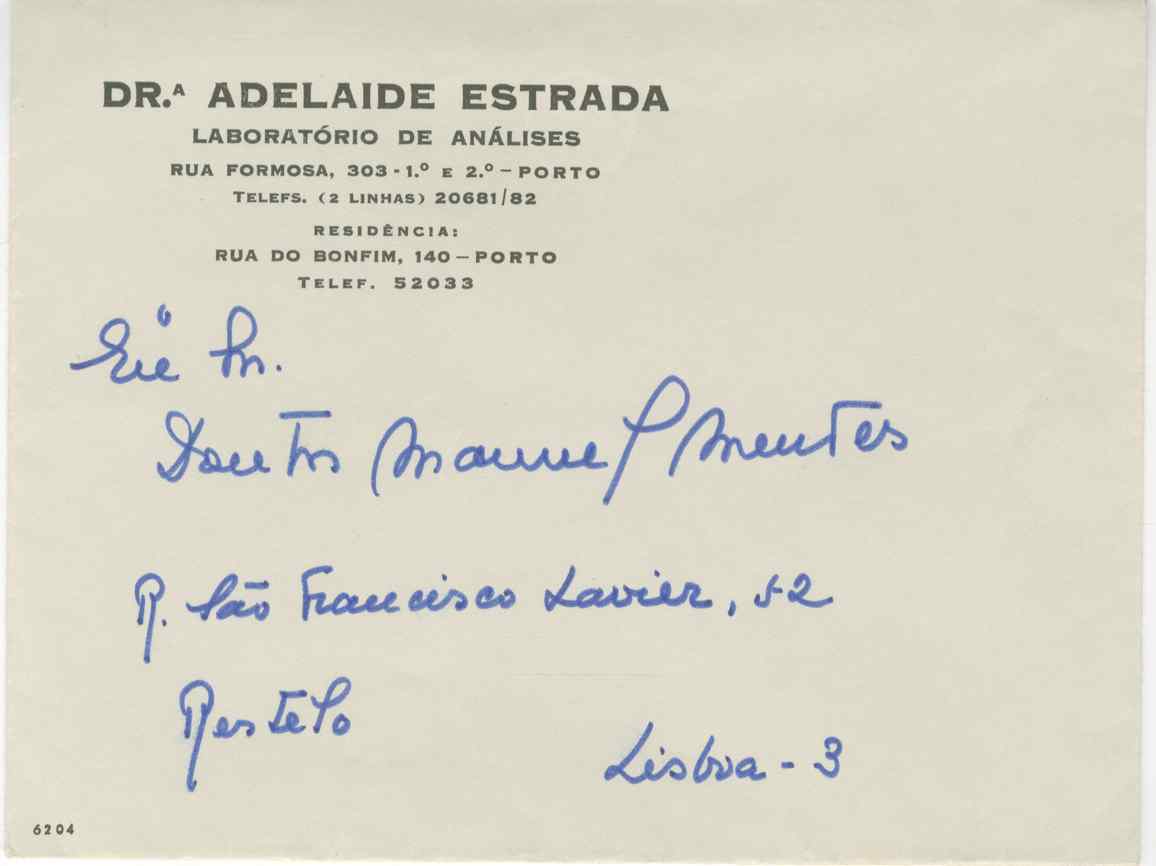 DR.ᴬ ADELAIDE ESTRADA
LABORATÓRIO DE ANÁLISES
RUA FORMOSA, 303 - 1.º E 2.º — PORTO
TELEFS. (2 LINHAS) 20681/82
RESIDÊNCIA:
RUA DO BONFIM, 140 — PORTO
TELEF. 52033
Sr.
Doutor Manuel Mendes
R. São Francisco Xavier, 52
Restelo
Lisboa - 3
6204